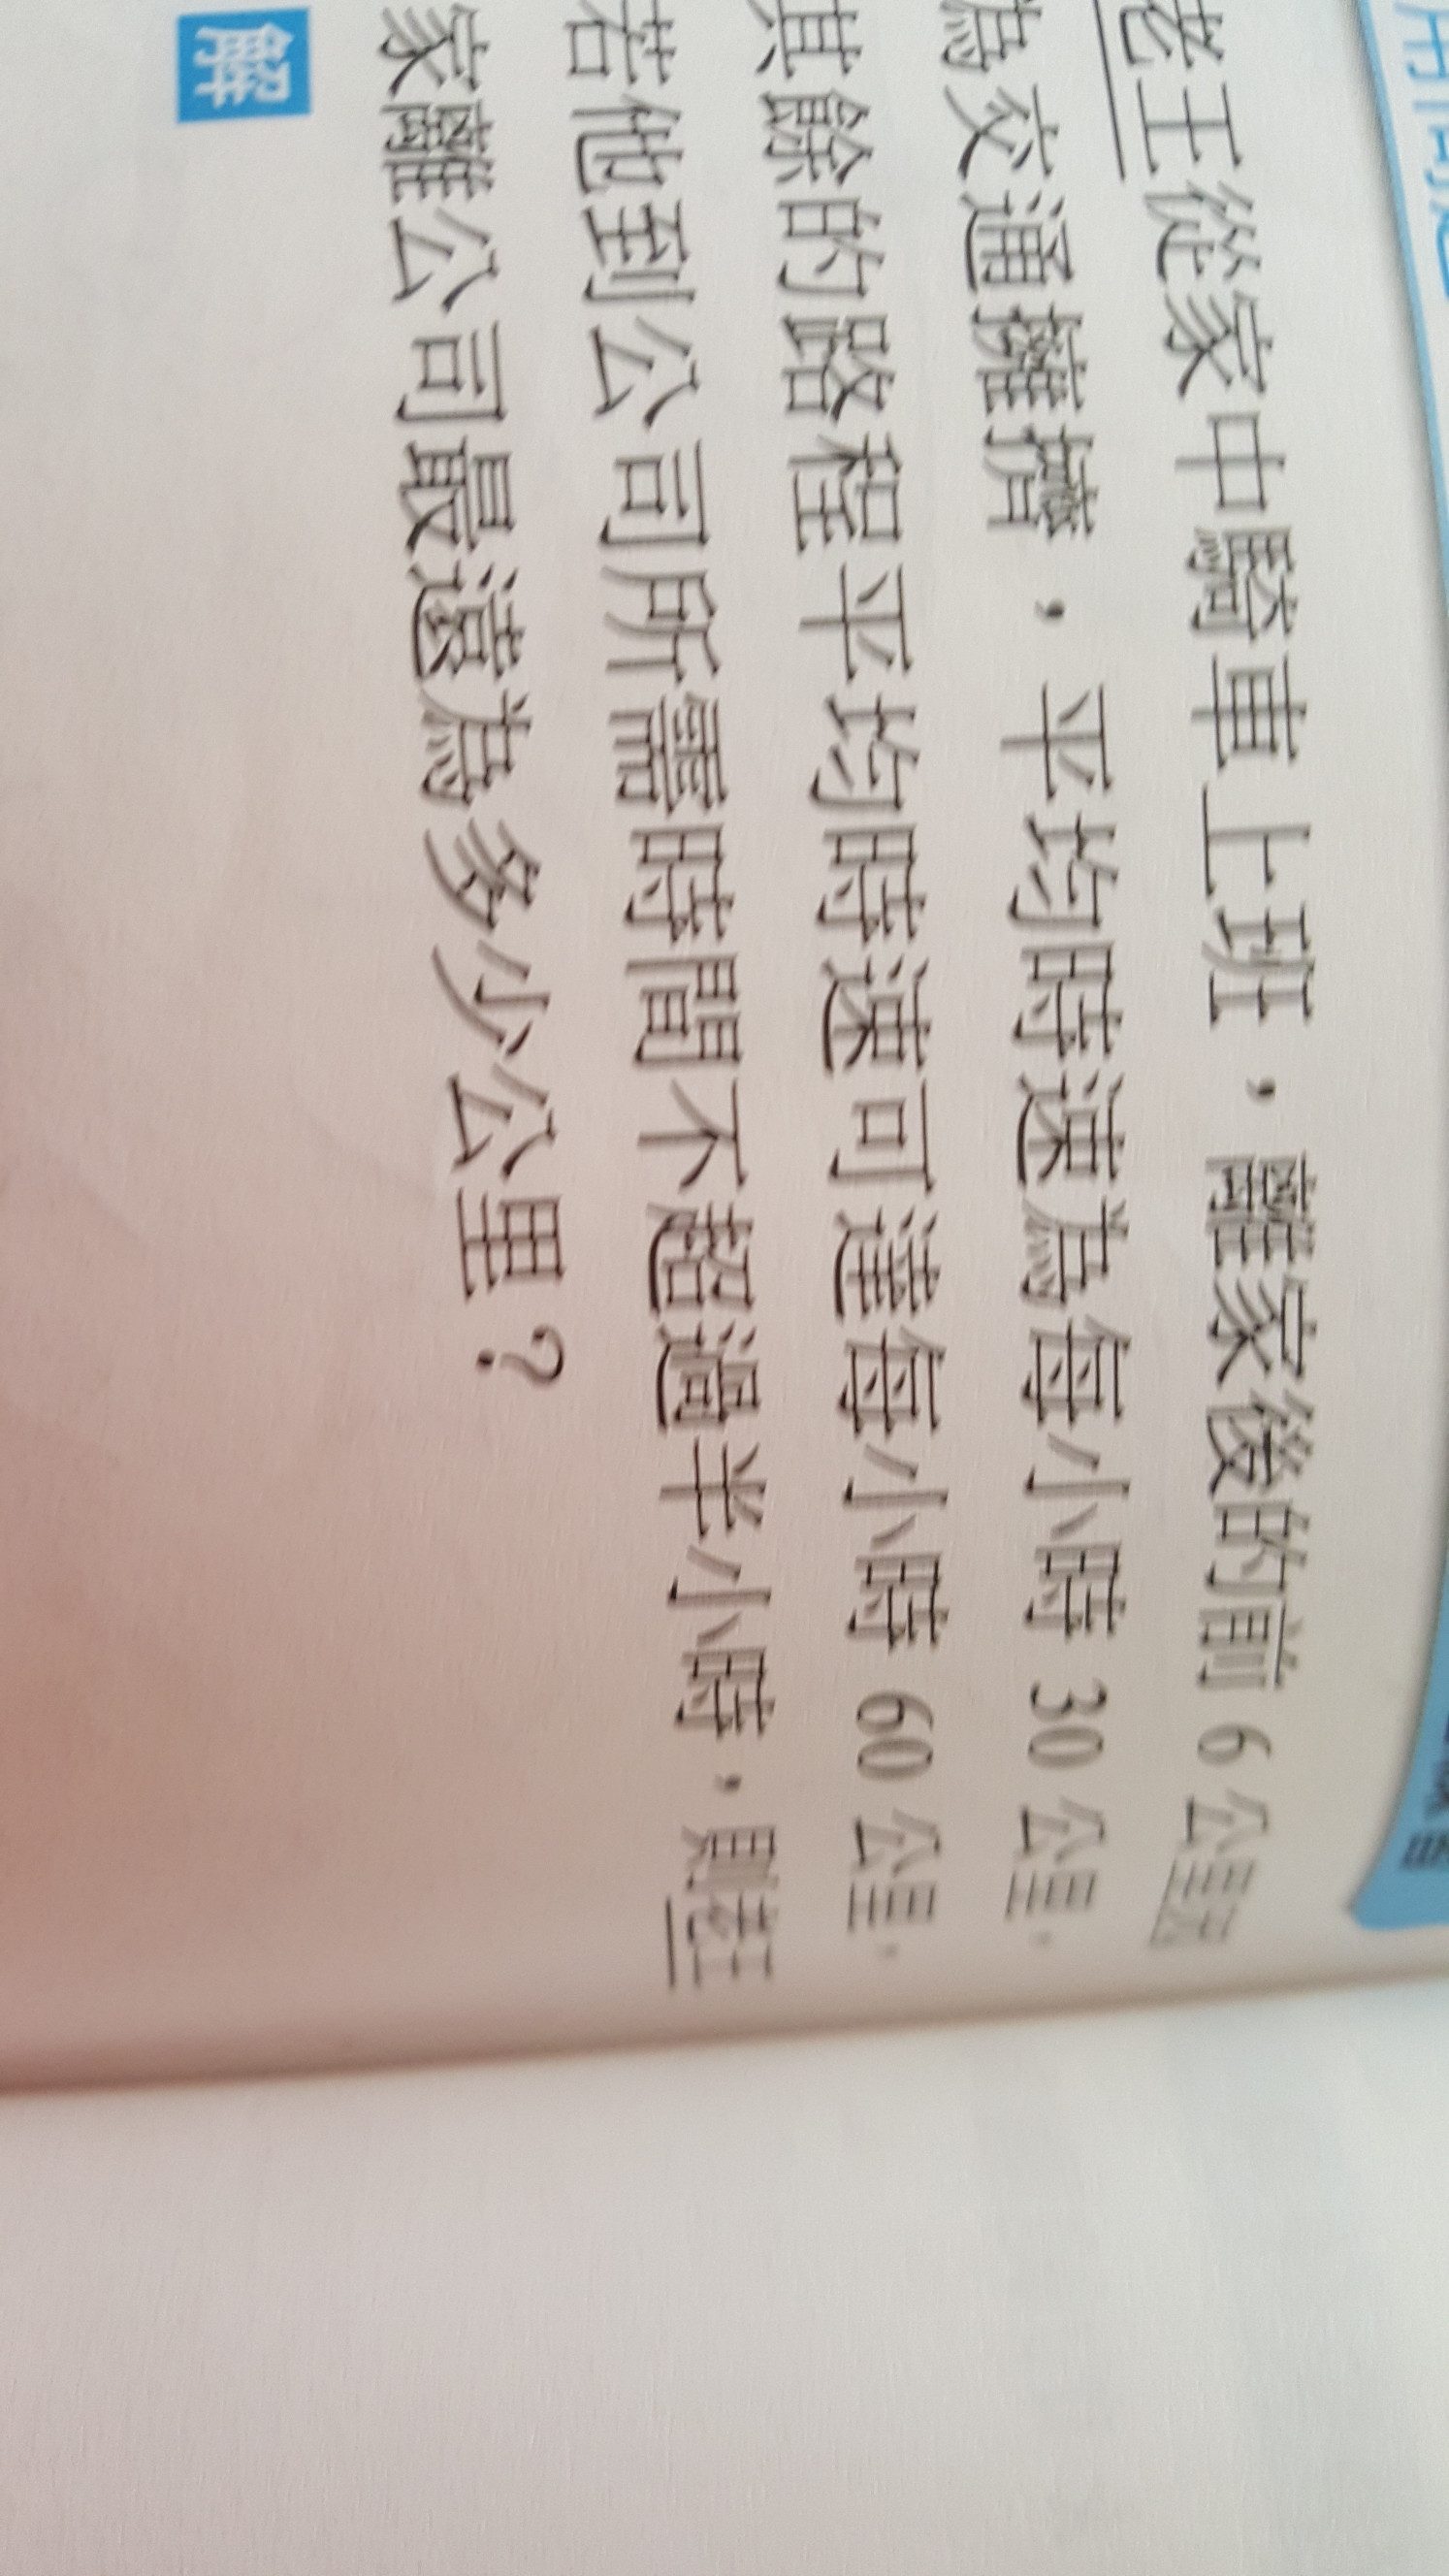 老王從家中騎車上班，離家後的前 6 公里因
為交通擁擠，平均時速為每小時 30 公里，
其餘的路程平均時速可達每小時 60 公里，
若他到公司所需時間不超過半小時，則老王
家離公司最遠為多少公里？
解